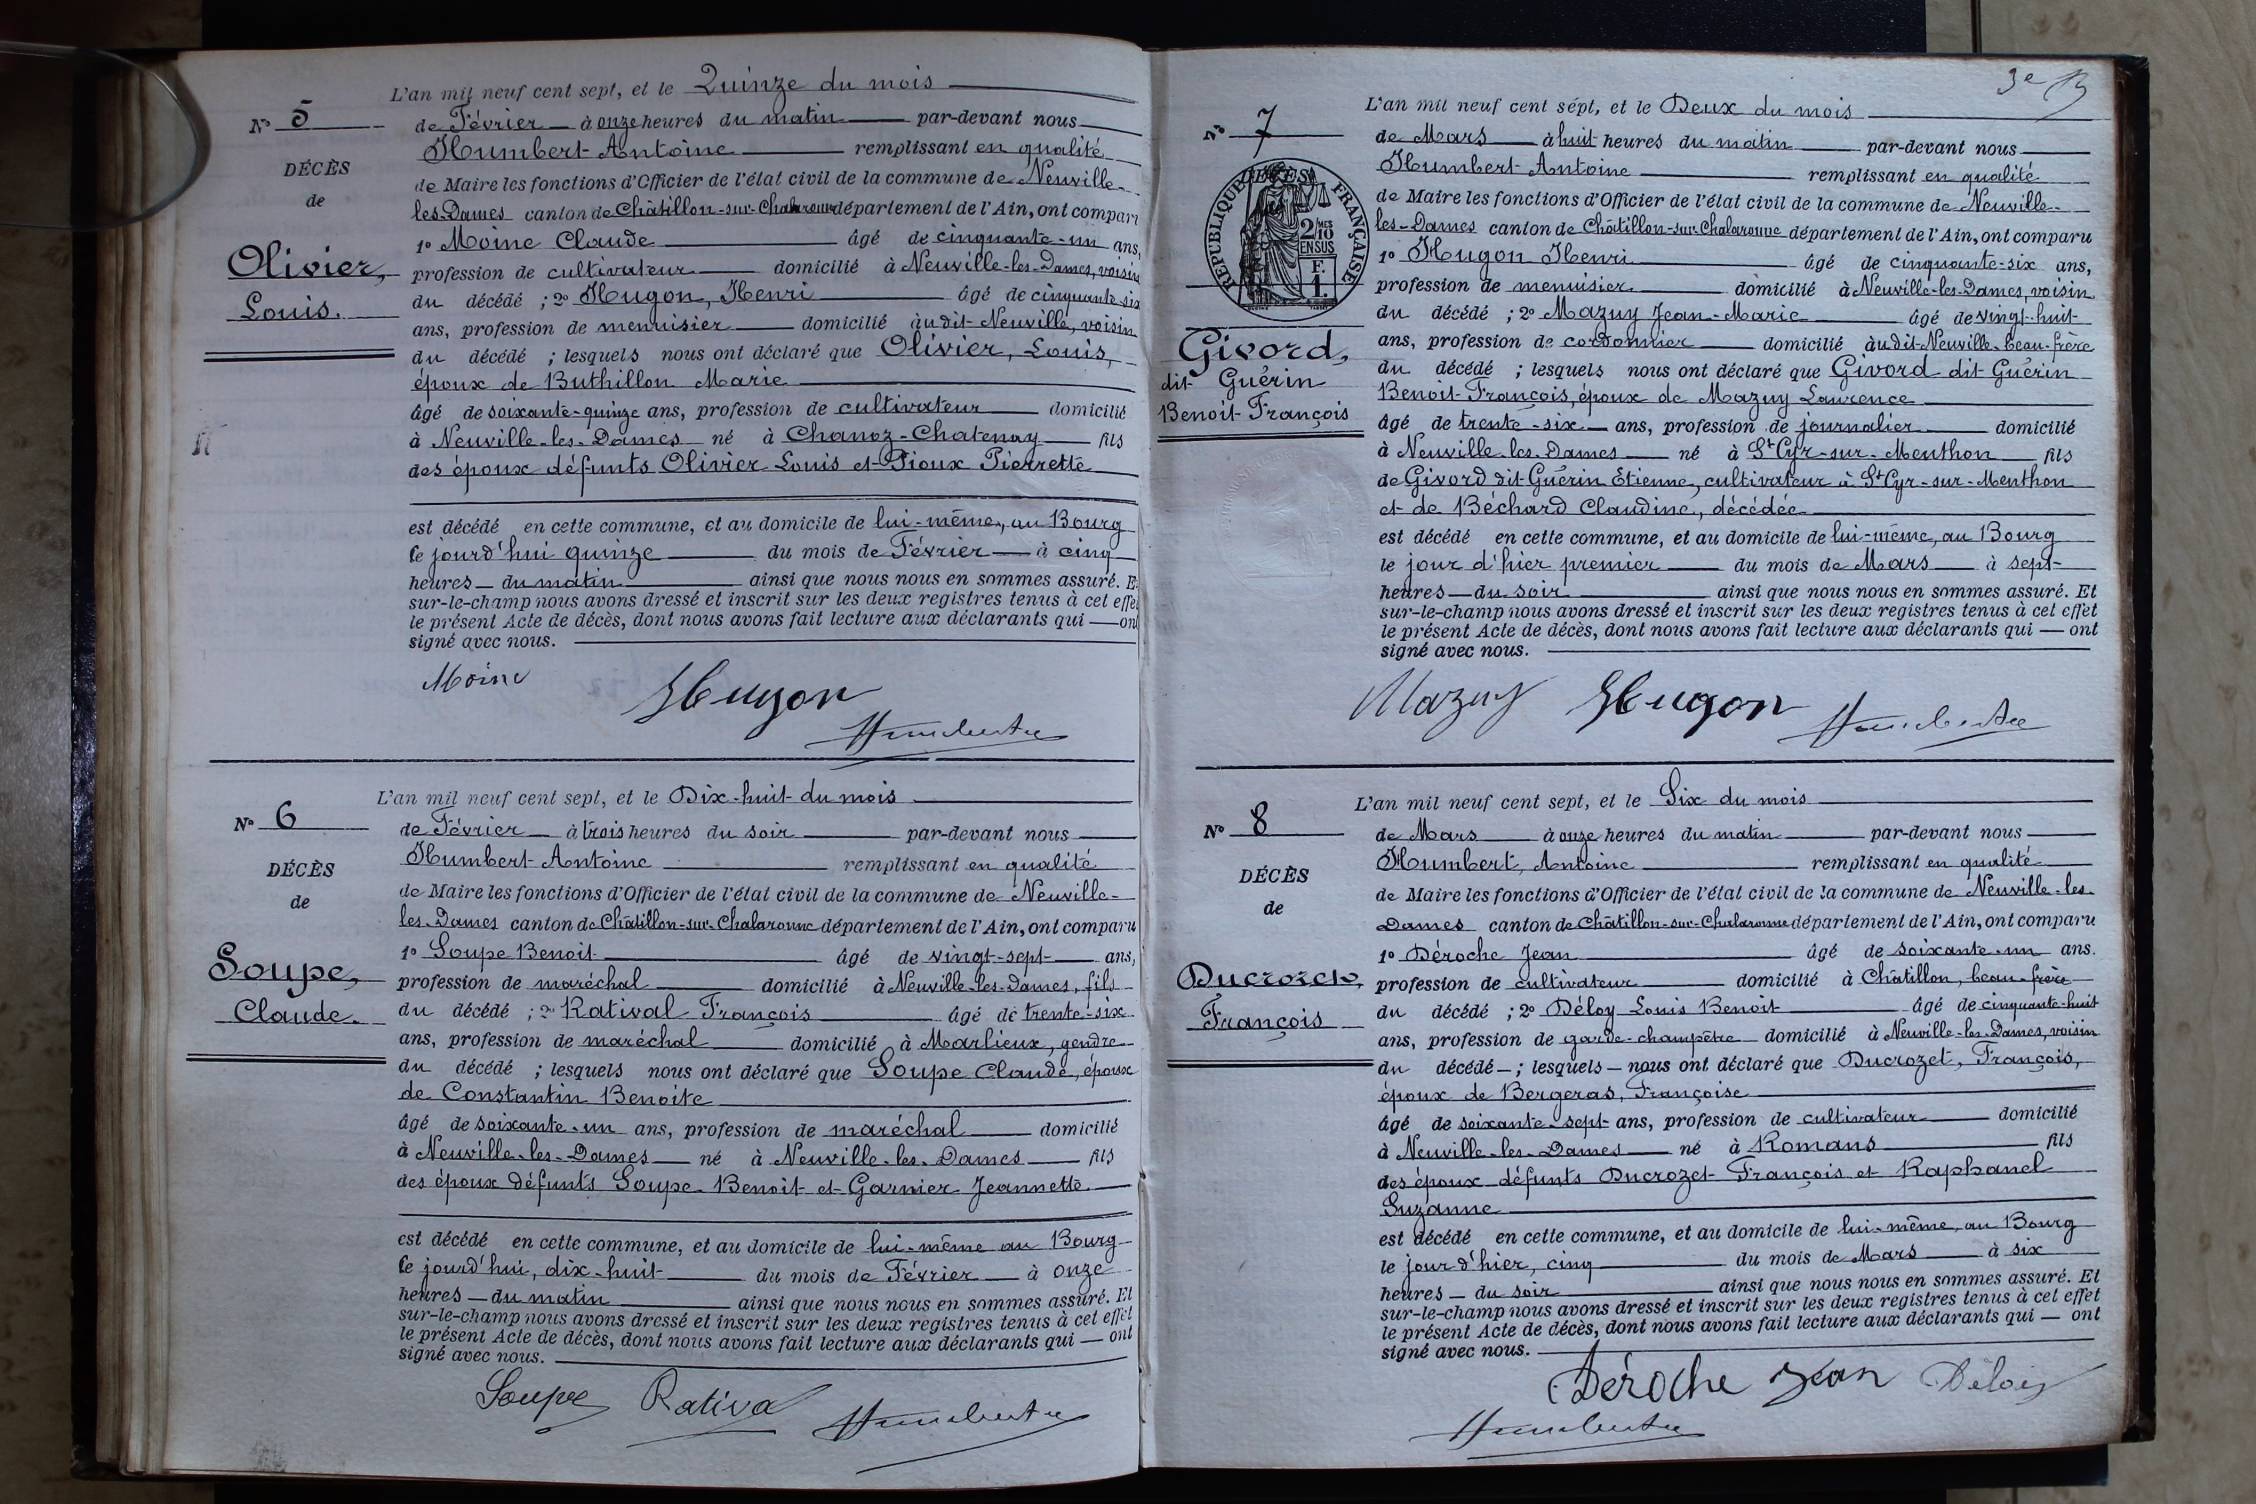 L'an mil neuf cent sept, et le Quinze du mois
N° 5
de Février à onze heures du matin par-devant nous
Humbert Antoine remplissant en qualité
DÉCÈS
de Maire les fonctions d'Officier de l'état civil de la commune de Neuville-
de
les-Dames canton de Châtillon-sur-Chalaronne département de l'Ain, ont compar
1° Moine Claude âgé de cinquante-un ans,
Olivier,
profession de cultivateur domicilié à Neuville-les-Dames, voisin
Louis.
du décédé ; 2° Hugon, Henri âgé de cinquante six
ans, profession de menuisier domicilié àudit Neuville, voisin
du décédé ; lesquels nous ont déclaré que Olivier, Louis,
époux de Buthillon Marie
âgé de soixante-quinze ans, profession de cultivateur domicilié
à Neuville-les-Dames né à Chanoz-Chatenay fils
des époux défunts Olivier Louis et Pioux Pierrette
est décédé en cette commune, et au domicile de lui-même, au Bourg
le jourd'hui quinze du mois de Février à cinq
heures du matin ainsi que nous nous en sommes assuré. E
sur-le-champ nous avons dressé et inscrit sur les deux registres tenus à cet effet
le présent Acte de décès, dont nous avons fait lecture aux déclarants qui — ont
signé avec nous.
Moine Hugon
L'an mil neuf cent sept, et le Dix-huit du mois
N° 6
de Février à trois heures du soir par-devant nous
Humbert Antoine remplissant en qualité
DÉCÈS
de Maire les fonctions d'Officier de l'état civil de la commune de Neuville-
de
les-Dames canton de Châtillon-sur-Chalaronne département de l'Ain, ont comparu
1° Soupe Benoit âgé de vingt-sept ans,
Soupe,
profession de maréchal domicilié à Neuville-les-Dames, fils
Claude.
du décédé ; 2° Ratival François âgé de trente-six
ans, profession de maréchal domicilié à Marlieux, gendre
du décédé ; lesquels nous ont déclaré que Soupe Claude, époux
de Constantin Benoite
âgé de soixante-un ans, profession de maréchal domicilié
à Neuville-les-Dames né à Neuville-les-Dames fils
des époux défunts Soupe Benoit et Garnier Jeannette
est décédé en cette commune, et au domicile de lui-même au Bourg
le jourd'hui, dix-huit du mois de Février à onze
heures — du matin ainsi que nous nous en sommes assuré. Et
sur-le-champ nous avons dressé et inscrit sur les deux registres tenus à cet effet
le présent Acte de décès, dont nous avons fait lecture aux déclarants qui — ont
signé avec nous.
Soupe Rativa
3e
L'an mil neuf cent sept, et le Deux du mois
N° 7
de Mars à huit heures du matin par-devant nous
Humbert Antoine remplissant en qualité
DÉCÈS
RÉPUBLIQUE FRANÇAISE
2/10 EN SUS
F. 1.
de Maire les fonctions d'Officier de l'état civil de la commune de Neuville-
les-Dames canton de Châtillon-sur-Chalaronne département de l'Ain, ont comparu
1° Hugon Henri âgé de cinquante-six ans,
profession de menuisier domicilié à Neuville-les-Dames, voisin
du décédé ; 2° Mazuy Jean-Marie âgé de vingt-huit
Givord,
ans, profession de cordonnier domicilié àudit Neuville beau-frère
dit Guérin
du décédé ; lesquels nous ont déclaré que Givord dit Guérin
Benoit-François
Benoit-François, époux de Mazuy Laurence
âgé de trente-six ans, profession de journalier domicilié
à Neuville-les-Dames né à St Cyr-sur-Menthon fils
de Givord dit Guérin Etienne, cultivateur à St Cyr-sur-Menthon
et de Béchard Claudine, décédée
est décédé en cette commune, et au domicile de lui-même, au Bourg
le jour d'hier premier du mois de Mars à sept
heures — du soir ainsi que nous nous en sommes assuré. Et
sur-le-champ nous avons dressé et inscrit sur les deux registres tenus à cet effet
le présent Acte de décès, dont nous avons fait lecture aux déclarants qui — ont
signé avec nous.
Mazuy Hugon
L'an mil neuf cent sept, et le Six du mois
N° 8
de Mars à onze heures du matin par-devant nous
Humbert, Antoine remplissant en qualité
DÉCÈS
de Maire les fonctions d'Officier de l'état civil de la commune de Neuville-les-
de
Dames canton de Châtillon-sur-Chalaronne département de l'Ain, ont comparu
1° Déroche Jean âgé de soixante-un ans.
Ducrozet,
profession de cultivateur domicilié à Châtillon, beau-frère
François
du décédé ; 2° Déloy Louis Benoit âgé de cinquante-huit
ans, profession de garde-champêtre domicilié à Neuville-les-Dames, voisin
du décédé — ; lesquels — nous ont déclaré que Ducrozet, François,
époux de Bergeras, Françoise
âgé de soixante-sept ans, profession de cultivateur domicilié
à Neuville-les-Dames né à Romans fils
des époux défunts Ducrozet François et Raphanel
Suzanne
est décédé en cette commune, et au domicile de lui-même, au Bourg
le jour d'hier, cinq du mois de Mars à six
heures — du soir ainsi que nous nous en sommes assuré. Et
sur-le-champ nous avons dressé et inscrit sur les deux registres tenus à cet effet
le présent Acte de décès, dont nous avons fait lecture aux déclarants qui — ont
signé avec nous.
Déroche Jean Déloy